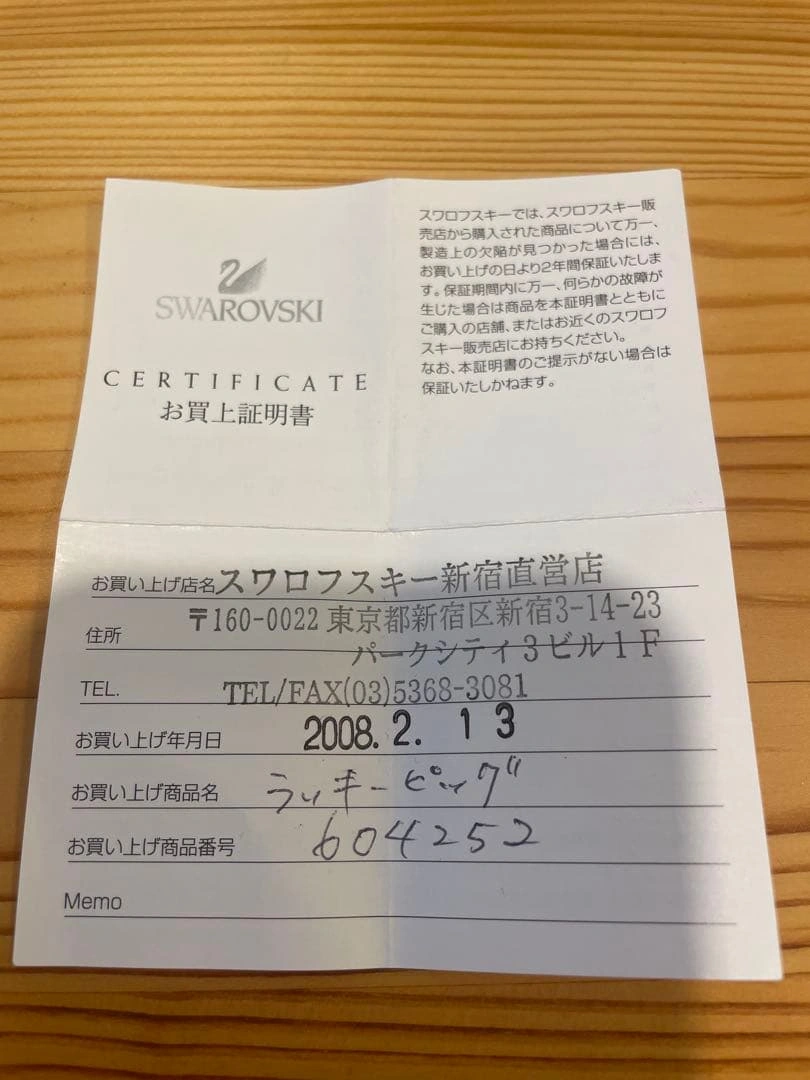 SWAROVSKI
CERTIFICATE
お買上証明書
スワロフスキーでは、スワロフスキー販
売店から購入された商品について万一、
製造上の欠陥が見つかった場合には、
お買い上げの日より2年間保証いたしま
す。保証期間内に万一、何らかの故障が
生じた場合は商品を本証明書とともに
ご購入の店舗、またはお近くのスワロフ
スキー販売店にお持ちください。
なお、本証明書のご提示がない場合は
保証いたしかねます。
お買い上げ店名 スワロフスキー新宿直営店
住所 〒160-0022 東京都新宿区新宿3-14-23
パークシティ3ビル1F
TEL. TEL/FAX(03)5368-3081
お買い上げ年月日 2008.2.13
お買い上げ商品名 ラッキーピッグ
お買い上げ商品番号 604252
Memo